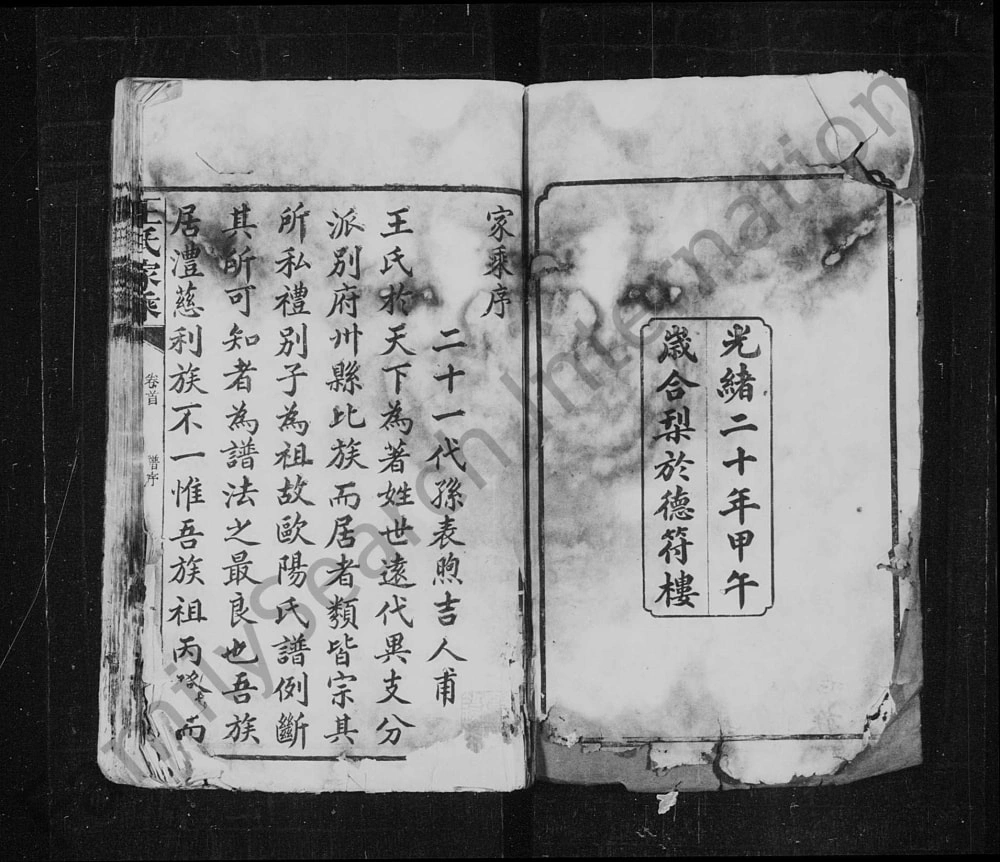 光緒二十年甲午
歲合梨於德符樓
家乘序
二十一代孫表煦吉人甫
王氏於天下為著姓世遠代異支分
派別府州縣比族而居者類皆宗其
所私禮別子為祖故歐陽氏譜例斷
其所可知者為譜法之最良也吾族
居澧慈利族不一惟吾族祖丙
王氏家乘
卷首
譜序
FamilySearch International